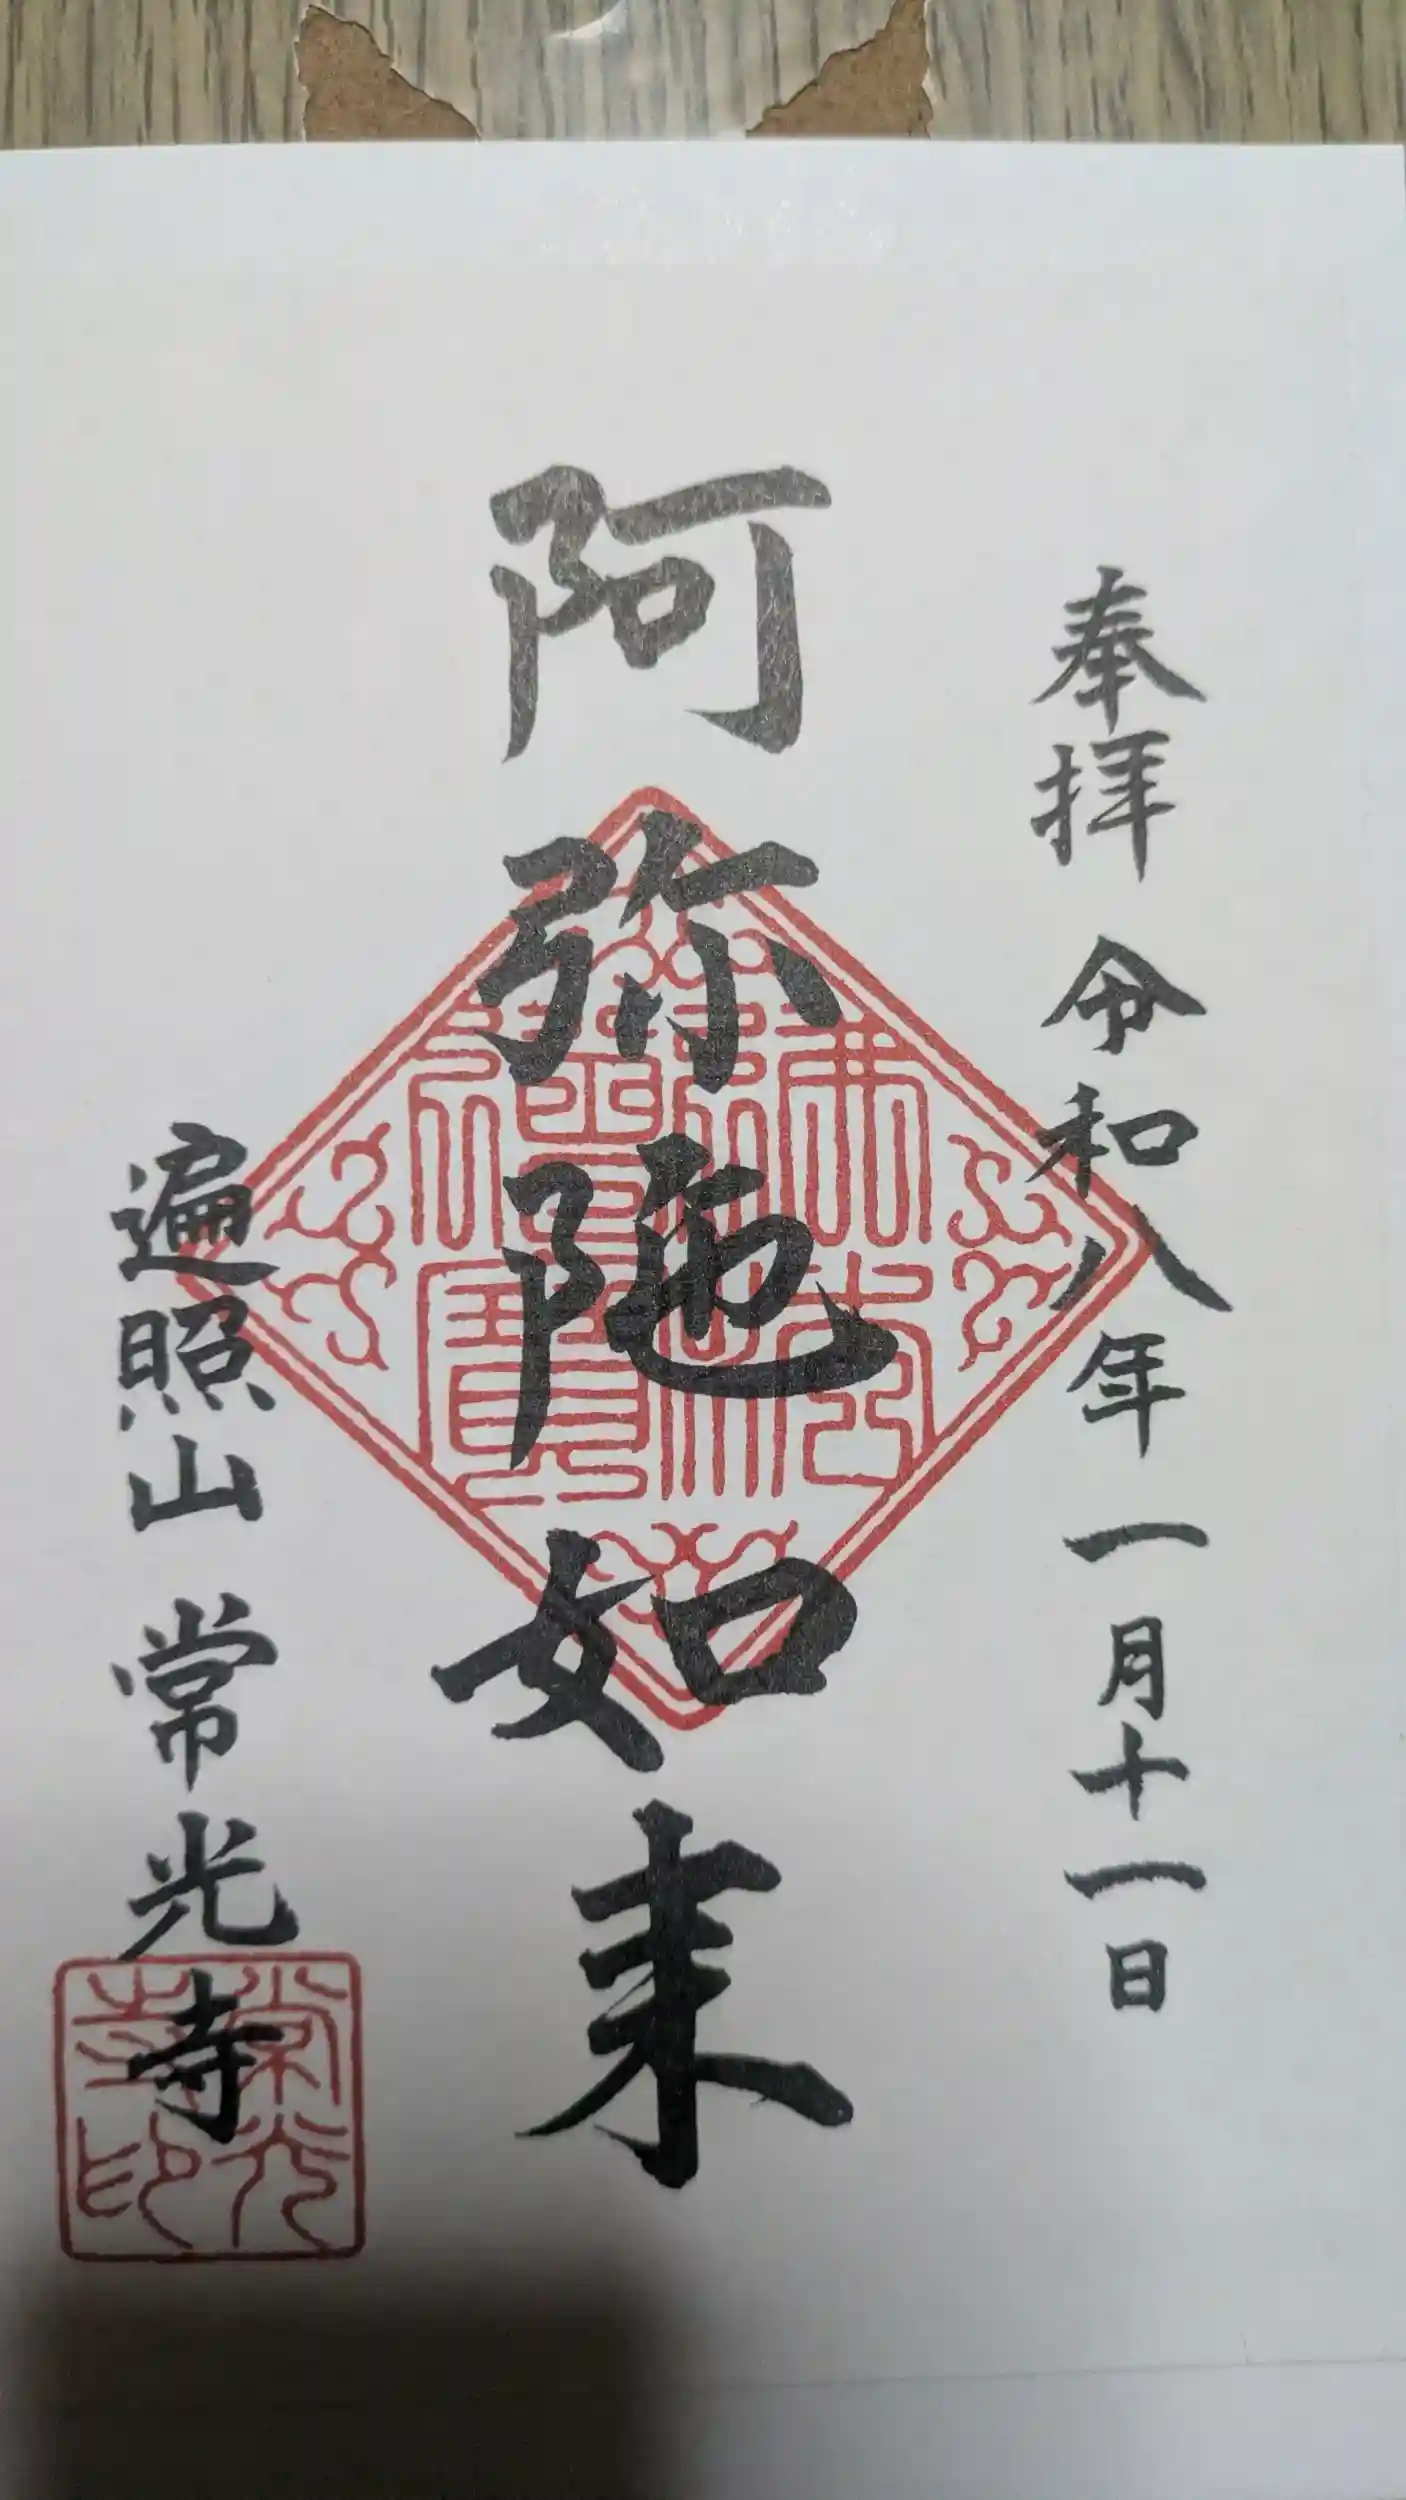 奉拝 令和八年一月十一日
阿弥陀如来
遍照山 常光寺
常光寺印